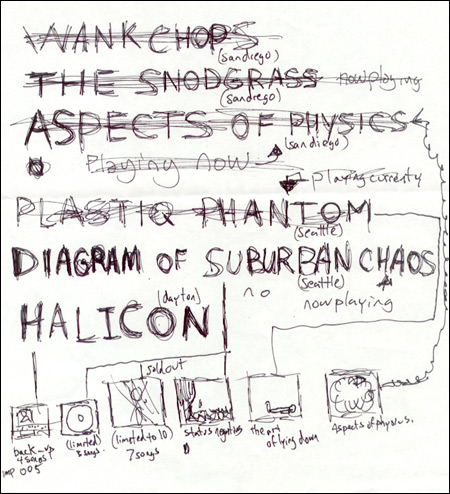 WANKCHOPS
(sandiego)
THE SNODGRASS nowplaying
(sandiego)
ASPECTS OF PHYSICS
(sandiego)
Playing now
playing currently
PLASTIQ PHANTOM
(seattle)
DIAGRAM OF SUBURBAN CHAOS
(seattle)
no
nowplaying
(dayton)
HALICON
soldout
back-up
4 songs
imp 005
(limited)
3 songs
(limited to 10)
7songs
status negatives
the art
of lying down
Aspects of physics.